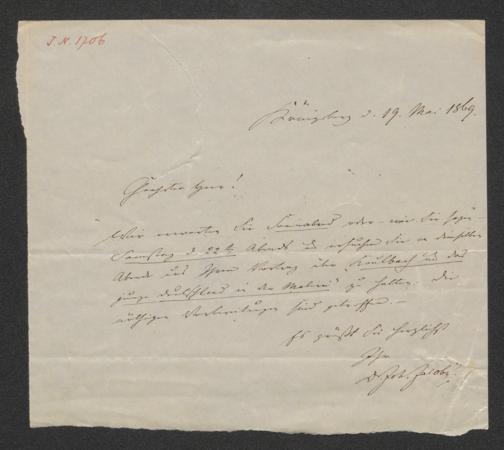 I. N. 1706
Königsberg d. 19. Mai 1869.
Geehrter Herr!
Wir erwarten Sie Sonnabend oder – wie Sie sagen –
Samstag d. 22ten Abends u. ersuchen Sie an demselben
Abende uns Ihren Vortrag über „Kaulbach und das
junge Deutschland in der Malerei" zu halten. Die
nöthigen Vorbereitungen sind getroffen. –
Es grüßt Sie herzlichst
Ihr
Dr. Joh. Jacoby.